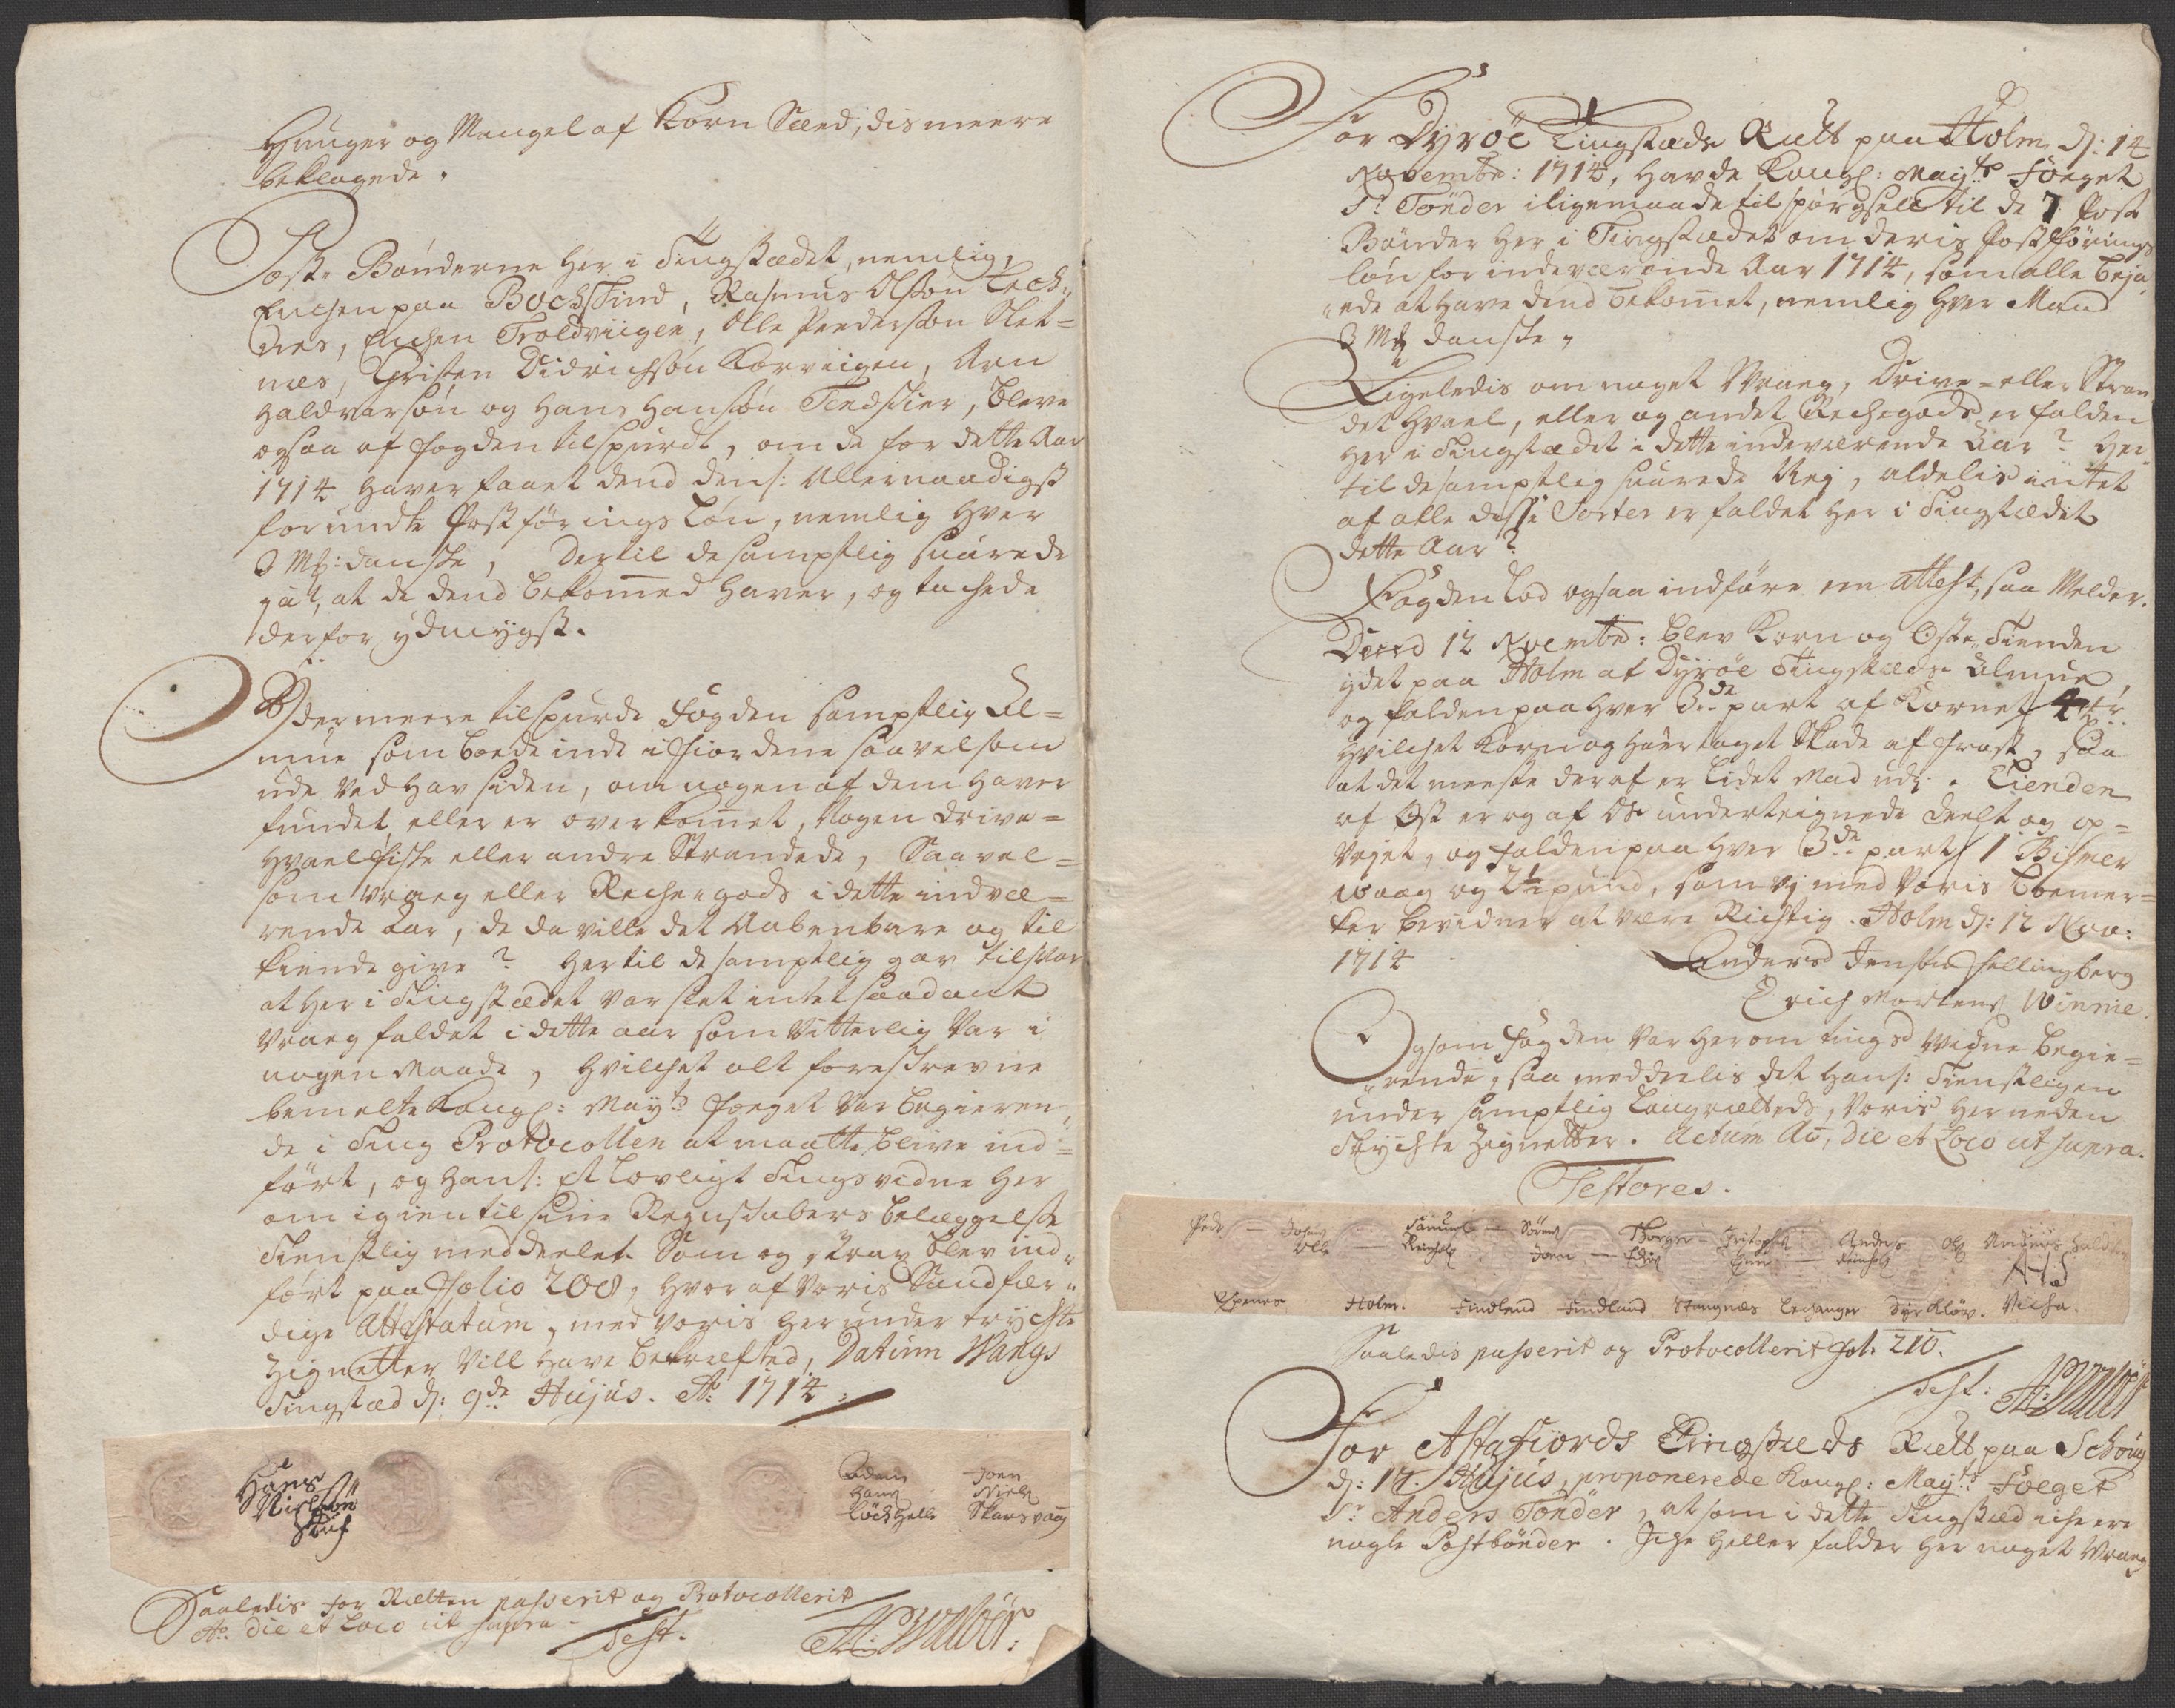 Hunger og Mangel af Korn Sæd, dis meere
beklagede.
Post Bønderne her i Tingstædet, nemlig,
Enchen paa Bochstind, Rasmus Olsøn Lech-
nes, Enchen Troldviigen, Olle Pedersøn Slet-
næs, Christen Didrichsøn Korviigen, Arn
Haldvarsøn og Hans Hansøn Tendskier, bleve
ogsaa af fogden tilspurdt, om de for dette Aar
1714 haver faaet dend dens: Allernaadigst
forundte Postførings Løn, nemlig hver
3 Mk: danske, Dertil de samptlig svarede
ja!, at de dend bekommed haver, og tachede
derfor ydmygst.
Ydermeere tilspurde Fogden samptlig Al-
mue som boede inde i Fiordene saavelsom
ude ved Hav siden, om nogen af dem haver
fundet, eller er overkommet, Nogen Drive-
Hvaelfiske eller andre Strandede, Saavel-
som Vrag eller Rechegods i dette indvæ-
rende Aar, de da ville det Aabenbare og til
kiende give? Hertil de samptlig gav tilsvar
at her i Tingstædet var slet intet saadant
Vrag faldet i dette aar som Vitterlig var i
nogen Maade, hvilchet alt foreskrevne
bemelte Kongl: Mayts Foeget var begieren-
de i Ting Protocollen at maatte blive ind-
ført, og hans: et Lovligt Tings vidne her
om igien til sine Regnskabers belæggelse
tienstlig meddeelet. Som og strax blev ind-
ført paa Folio 208, hvoraf Voris Sandfær-
dige Attestatum, med Voris herunder trychte
Zignetter Vill have bekræfted, Datum Wangs
Tingstæd d: 9de Hujus. Ao 1714:
Hans
Nielsøn
Struf
Adam
Hans
Løchhelle
Joen
Niels
Skarsvaag
Saaledis for Rætten passerit og Protocollerit
Ao. die et Loco ut supra.
Test.
For Dyrøe Tingstæds Rætt paa Holm d: 14
Novembr: 1714, havde Kongl: Mayts Foeget
Sr Tønder iligemaade tilspørgsell til de 7 Post
Bønder her i Tingstædet om deris Postførings
løn for indeværende Aar 1714, som alle beja-
ede at have dend bekommet, nemlig hver Mand
3 Mk danske,
Ligeledis om noget Vrag, Drive- eller Stran-
det Hvael, eller og andet Rechegods er falden
her i Tingstædet i dette indeværende Aar? Her-
til de samptlig svarede Nej, aldelis intet
af alle disse Sorter er faldet her i Tingstædet
dette Aar?
Fogden lod ogsaa indføre en attest, saa Melder.
Dend 12 Novembr: blev Korn og Oste Tienden
ydet paa Holm af Dyrøe Tingstæds Almue,
og falden paa hver 3de part af Kornet 4
hvilchet Korn og haver taget Skade af frost, saa
at det meeste deraf er lidet Mad udj. Tienden
af Ost er og af Os underteignede deelt og op-
Vejet, og falden paa hver 3de part 1 Bismer
waag og 2½ pund, som vj med Voris boemer-
ker bevidner at være Rigtig. Holm d: 12 Nov:
1714
Anders Jensøn Hellingberg
Erich Mortens Winnie.
Og som Fogden var herom tings Widne begie-
rende, saa meddeelis det hans: Tienstligen
under samptlig Laugrætteds, Voris herneden
trychte Zignetter. Actum Ao, die et Loco ut supra.
Testores.
Peder — Johan — Samuel — Søren — Thorger — Cristopher — Anders Ole Anders Haldor
Olle — Reinholt Joen — Erich Enn — Reinholt AHS
Espenes Holm. Findland Findland Stangnæs Leehanger Dyrkløv. Vicha.
Saaledis passerit og Protocollerit fol. 210.
Test:
For Astafiords Tingstæds Rætt paa Schong
d: 17. Hujus, proponerede Kongl: Mayts Foeget
Sr Anders Tønder, at som i dette Tingstæd iche ere
nogle Postbønder. Iche heller falder her noget Vrag